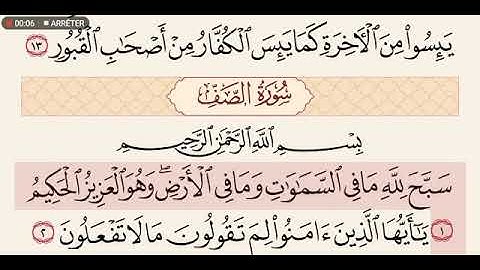 00:06 ■ ARRÊTER
يَئِسُوا۟ مِنَ ٱلْـَٔاخِرَةِ كَمَا يَئِسَ ٱلْكُفَّارُ مِنْ أَصْحَٰبِ ٱلْقُبُورِ ١٣
سُورَةُ الصَّفِّ
بِسْمِ ٱللَّهِ ٱلرَّحْمَٰنِ ٱلرَّحِيمِ
سَبَّحَ لِلَّهِ مَا فِى ٱلسَّمَٰوَٰتِ وَمَا فِى ٱلْأَرْضِ ۖ وَهُوَ ٱلْعَزِيزُ ٱلْحَكِيمُ
١ يَٰٓأَيُّهَا ٱلَّذِينَ ءَامَنُوا۟ لِمَ تَقُولُونَ مَا لَا تَفْعَلُونَ ٢